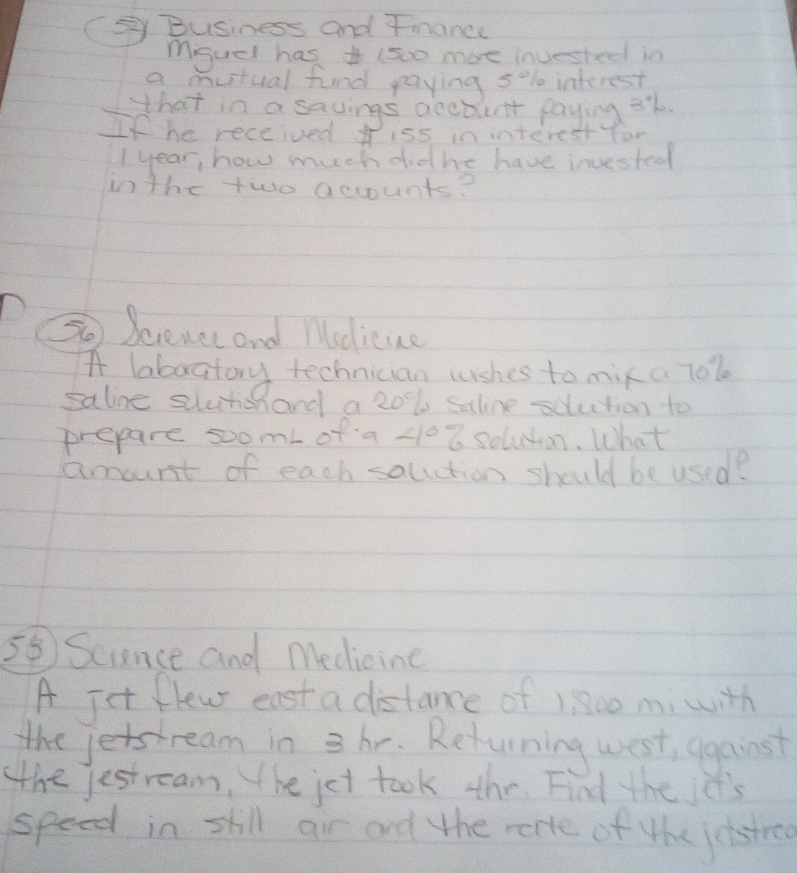 52 Business and Finance
Miguel has $ 1500 more invested in
a mutual fund paying 5% interest
that in a savings account paying 3%.
If he received $ 155 in interest for
1 year, how much did he have invested
in the two accounts?
56 Science and Medicine
A laboratory technician wishes to mix a 70%
saline slution and a 20% saline solution to
prepare 500 mL of a 40% solution. What
amount of each solution should be used?
Science and Medicine
A jet flew east a distance of 1,800 mi with
the jetstream in 3 hr. Returning west, against
the jestream, the jet took 4hr. Find the jet's
speed in still air and the rate of the jetstrea